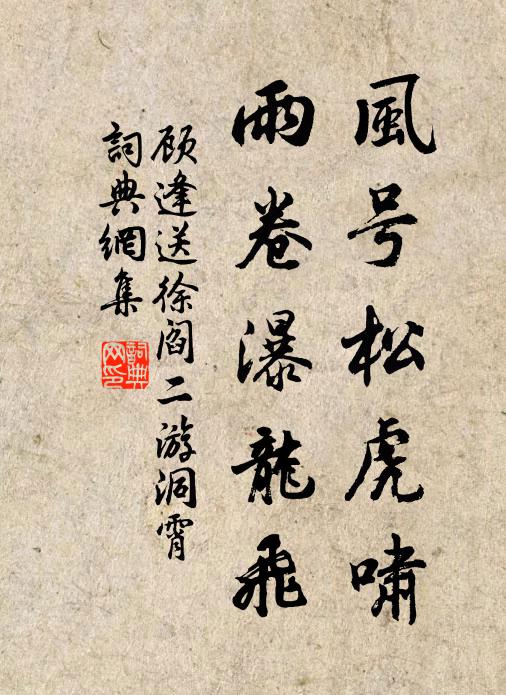 風号松虎啸
雨卷瀑龍飛
顾逢送徐阎二游洞霄
詞典網集
詞典网印